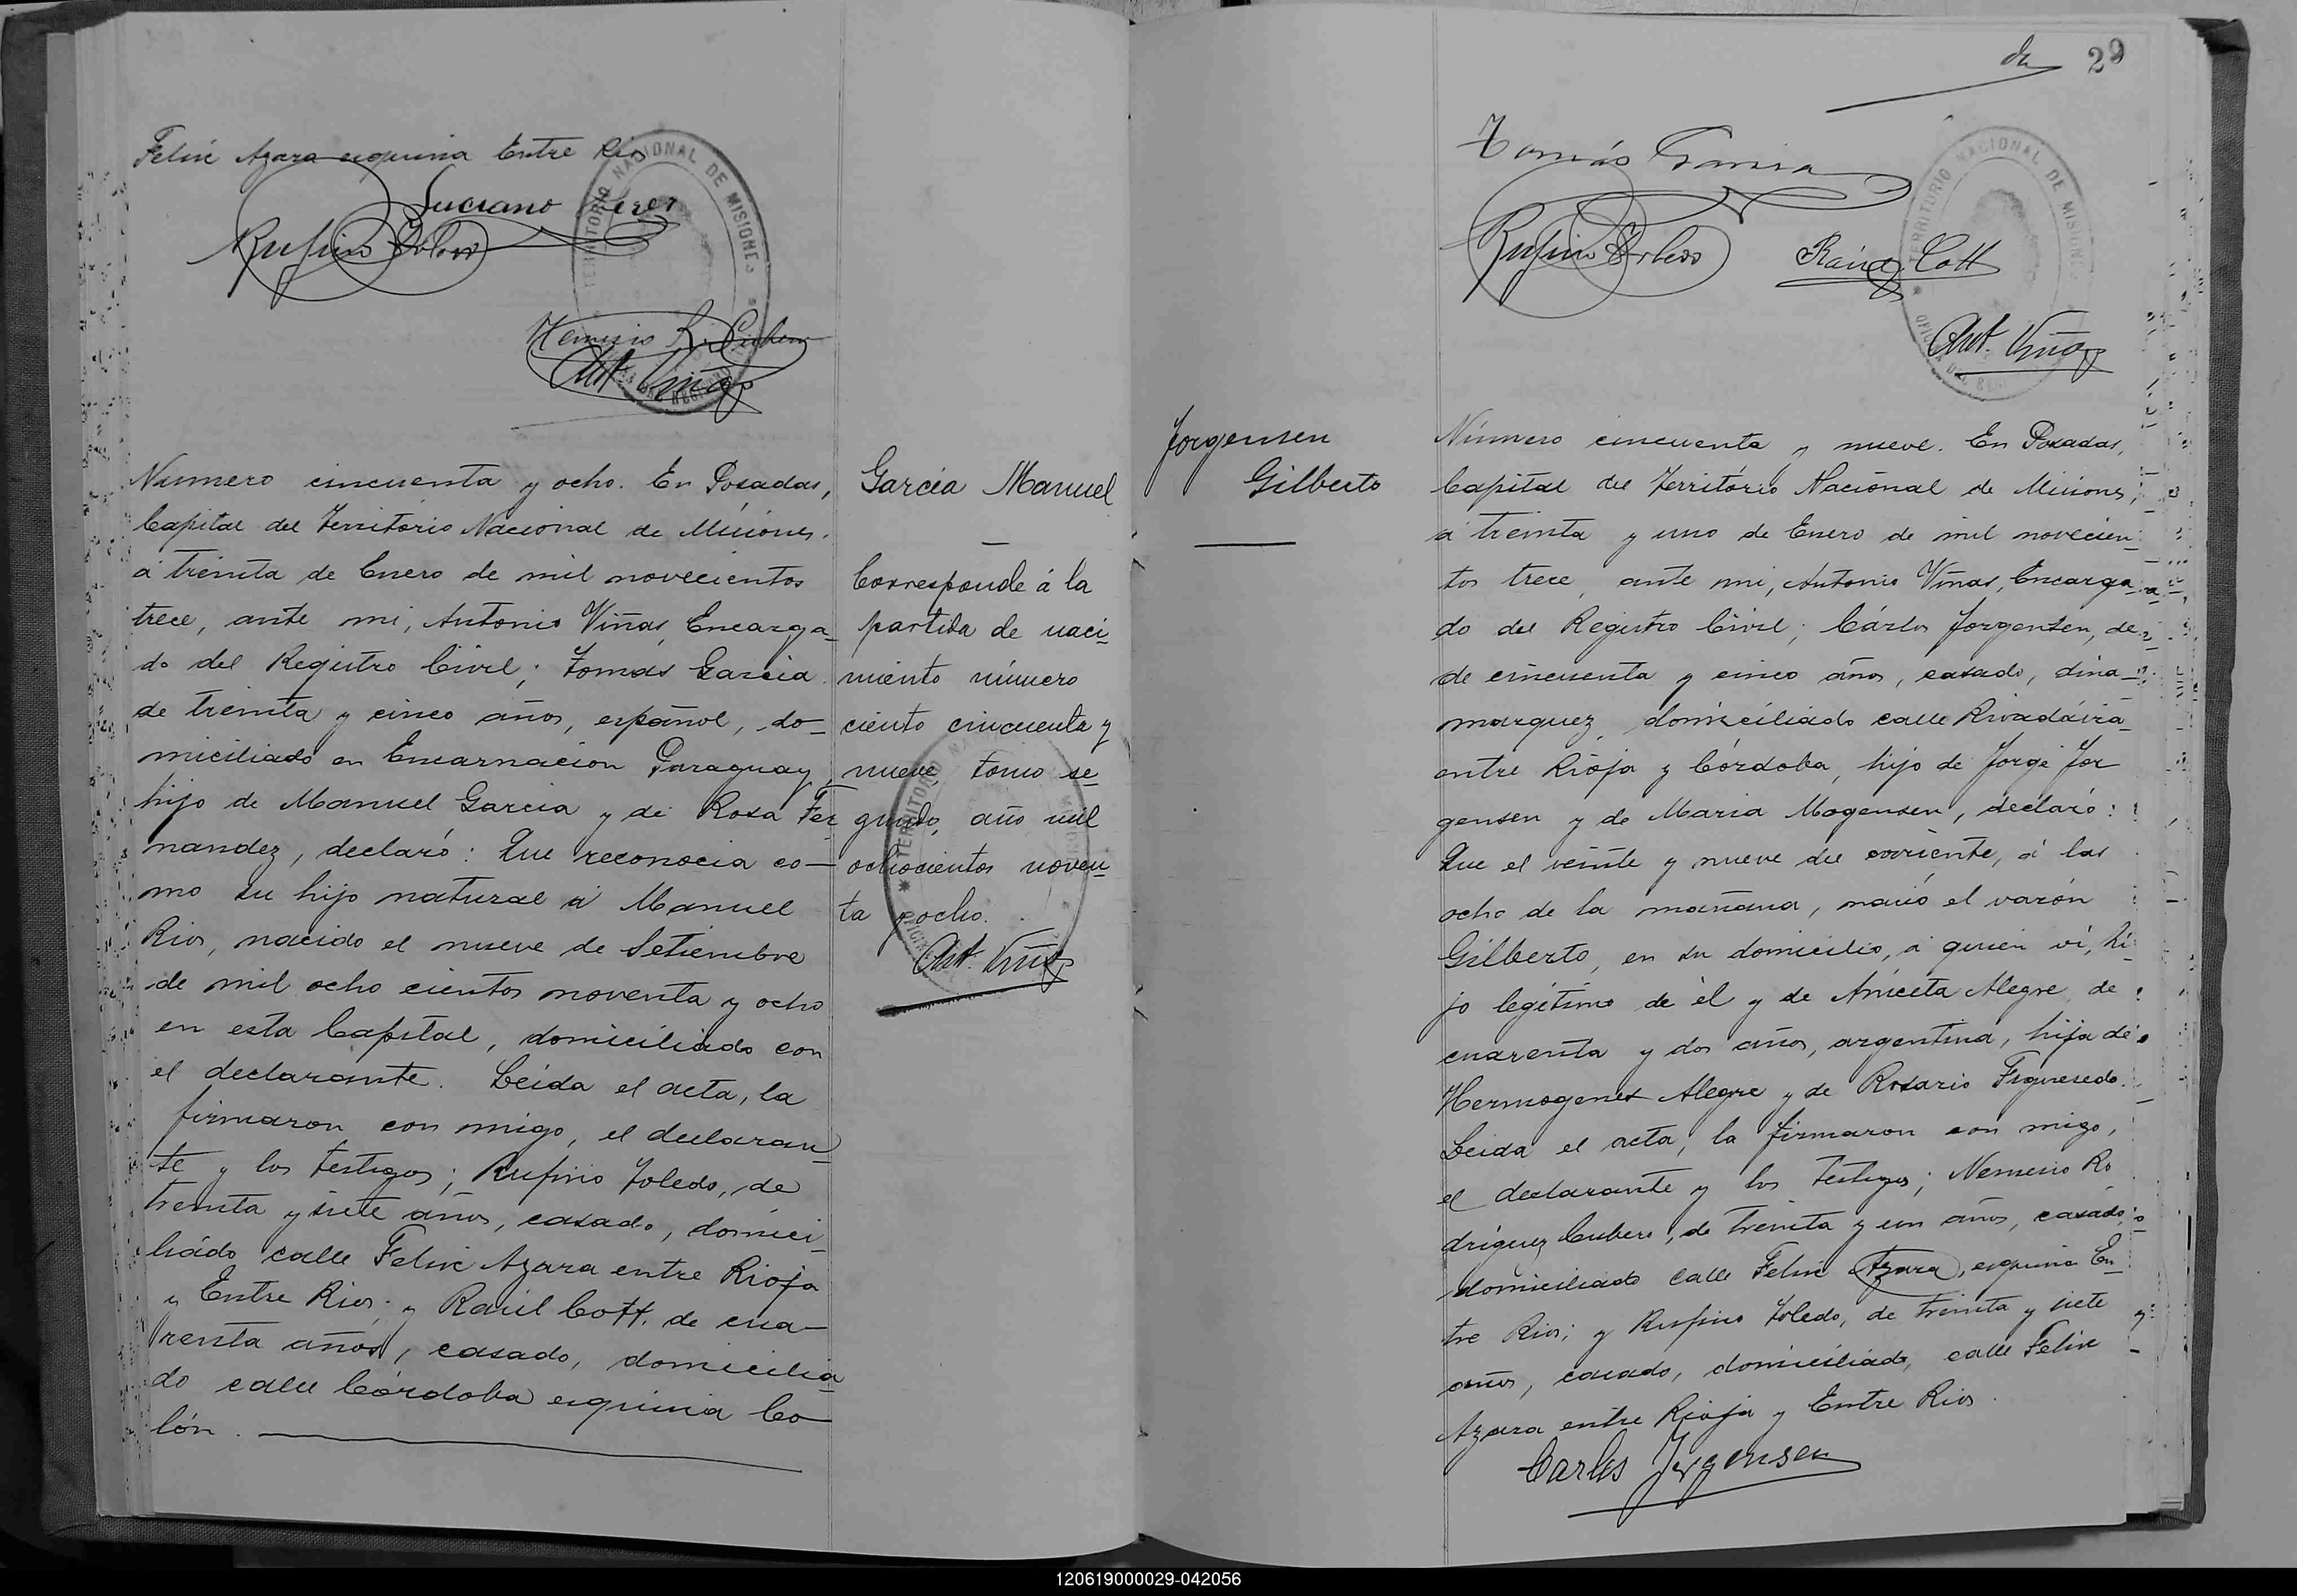 Felix Azara esquina Entre Rios
Luciano Perez
Rufino Toledo
TERRITORIO NACIONAL DE MISIONES
Nemesio R. Cubero
Ant. Viñas
Numero cincuenta y ocho. En Posadas,
Capital del Territorio Nacional de Misiones,
á treinta de Enero de mil novecientos
trece, ante mi, Antonio Viñas, Encarga-
do del Registro Civil; Tomás Garcia
de treinta y cinco años, español, do-
miciliado en Encarnacion Paraguay,
hijo de Manuel Garcia y de Rosa Fer
nandez, declaró: Que reconocia co-
mo su hijo natural á Manuel
Rios, nacido el nueve de Setiembre
de mil ocho cientos noventa y ocho
en esta Capital, domiciliado con
el declarante. Leida el acta, la
firmaron con migo, el declaran-
te y los testigos; Rufino Toledo, de
treinta y siete años, casado, domici-
liado calle Felix Azara entre Rioja
y Entre Rios; y Raúl Cott, de cua-
renta años, casado, domicilia-
do calle Córdoba esquina Co-
lón.
García Manuel
Corresponde á la
partida de naci-
miento número
ciento cincuenta y
nueve tomo se-
gundo, año mil
ochocientos noven-
ta y ocho.
Ant. Viñas
29
Tomás Garcia
Rufino Toledo
Raúl Cott
TERRITORIO NACIONAL DE MISIONES
Ant. Viñas
Jorgensen
Gilberto
Número cincuenta y nueve. En Posadas,
Capital del Territorio Nacional de Misiones,
á treinta y uno de Enero de mil novecien-
tos trece, ante mi, Antonio Viñas, Encarga-
do del Registro Civil; Cárlos Jorgensen, de
de cincuenta y cinco años, casado, dina-
marquez, domiciliado calle Rivadavia
entre Rioja y Córdoba, hijo de Jorge Jor
gensen y de Maria Mogensen, declaró:
Que el veinte y nueve del corriente, á las
ocho de la mañana, nació el varón
Gilberto, en su domicilio, á quien vi, hi-
jo legítimo de él y de Aniceta Alegre, de
cuarenta y dos años, argentina, hija de
Hermogenes Alegre y de Rosario Figueredo.
Leida el acta, la firmaron con migo,
el declarante y los testigos; Nemesio Ro
driguez Cubero, de treinta y un años, casado,
domiciliado calle Felix Azara, esquina En-
tre Rios; y Rufino Toledo, de treinta y siete
años, casado, domiciliado, calle Felix
Azara entre Rioja y Entre Rios.
Carlos Jorgensen
120619000029-042056